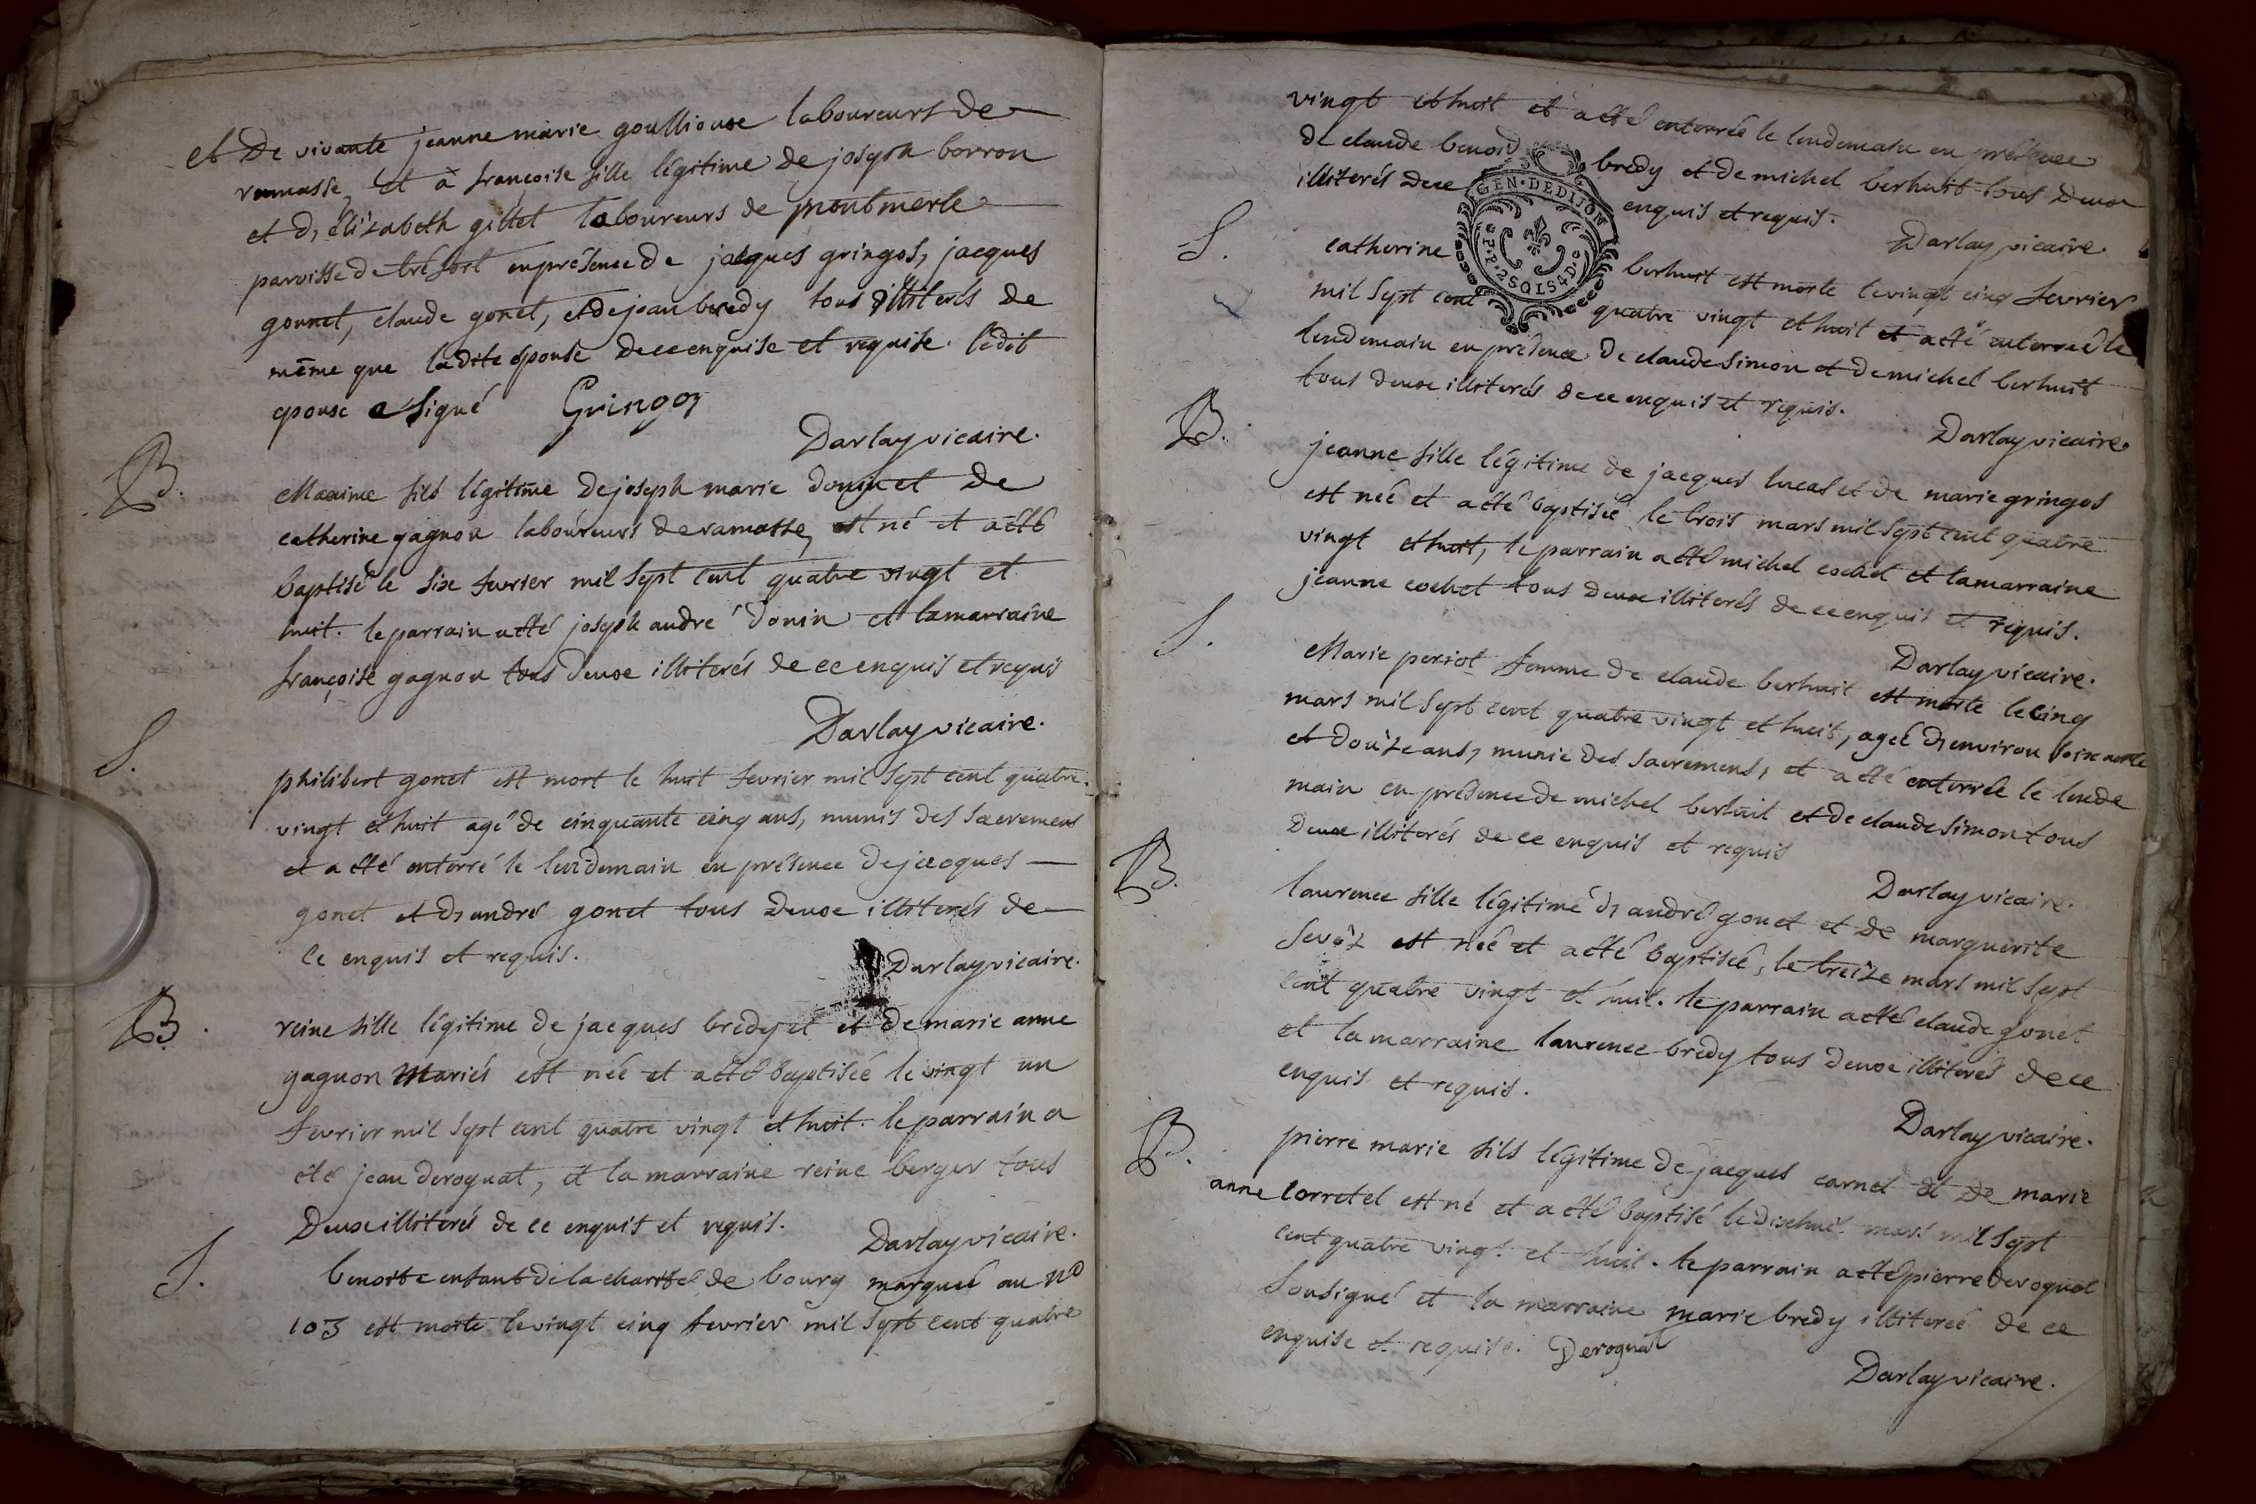 et de vivante jeanne marie goullioux laboureurs de
ramasse, et à françoise fille légitime de joseph borron
et d, élizabeth gillet laboureurs de montmerle
paroisse de tréfort en présence de jacques gringos, jacques
gonnet, claude gonet, et de jean bredy tous illiterés de
même que ladite epouse de ce enquise et requise. ledit
epoux a signé Gringoz
Darlay vicaire.
B.
Maxime fils légitime de joseph marie donin et de
catherine gagnon laboureurs de ramasse, est né et a eté
baptisé le six fevrier mil sept cent quatre vingt et
huit. le parrain a eté joseph andré donin et la marraine
françoise gagnon tous deux illiterés de ce enquis et requis
Darlay vicaire.
S.
philibert gonet est mort le huit fevrier mil sept cent quatre
vingt et huit agé de cinquante cinq ans, munis des sacremens
et a eté enterré le lendemain en présence de jacques
gonet et d, andré gonet tous deux illiterés de
ce enquis et requis.
Darlay vicaire.
B.
reine fille légitime de jacques bredy et et de marie anne
gagnon mariés est née et a eté baptisée le vingt un
fevrier mil sept cent quatre vingt et huit. le parrain a
eté jean deroguat, et la marraine reine berger tous
deux illiterés de ce enquis et requis.
Darlay vicaire.
S.
benoite enfant de la charité de bourg marquée au No
103 est morte le vingt cinq fevrier mil sept cent quatre
vingt et huit et a eté enterrée le lendemain en présence
de claude benoid bredy et de michel berhuit tous deux
illiterés de ce enquis et requis.
GEN·DE DIJON
Darlay vicaire.
S.
catherine berhuit est morte le vingt cinq fevrier
mil sept cent quatre vingt et huit et a eté enterreé le
lendemain en présence de claude simon et de michel berhuit
tous deux illiterés de ce enquis et requis.
Darlay vicaire.
B.
jeanne fille légitime de jacques lucas et de marie gringos
est neé et a eté baptiseé le trois mars mil sept cent quatre
vingt et huit, le parrain a eté michel cochet et la marraine
jeanne cochet tous deux illiterés de ce enquis et requis.
Darlay vicaire.
S.
Marie periot femme de claude berhuit est morte le cinq
mars mil sept cent quatre vingt et huit, ageé d, environ soixante
et douze ans, munie des sacremens, et a eté enterrée le lende
main en présence de michel berhuit et de claude simon tous
deux illiterés de ce enquis et requis
Darlay vicaire.
B.
laurence fille légitime d, andré gonet et de marguerite
sevoz est neé et a eté baptiseé, le treize mars mil sept
cent quatre vingt et huit. le parrain a eté claude gonet
et la marraine laurence bredy tous deux illiterés de ce
enquis et requis.
Darlay vicaire.
B.
pierre marie fils légitime de jacques carnet et de marie
anne corretel est né et a eté baptisé le dix huit mars mil sept
cent quatre vingt et huit. le parrain a eté pierre deroguat
sousigné et la marraine marie bredy illitereé de ce
enquise et requise. Deroguat
Darlay vicaire.